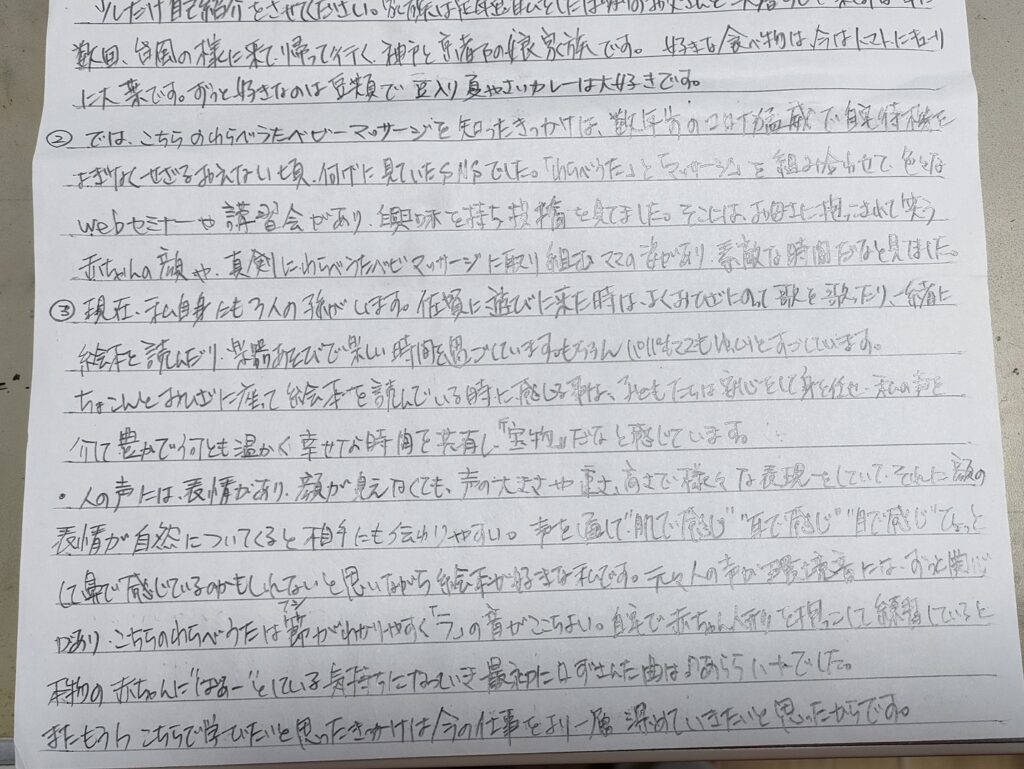 少しだけ自己紹介をさせてください。家族は
数回、台風の様に来て帰って行く、神戸と京都の娘家族です。 好きな食べ物は、今はトマトにキュウリ
に大葉です。ずっと好きなのは豆類で豆入り夏やさいカレーは大好きです。
② では、こちらのわらべうたベビーマッサージを知ったきっかけは、数年前のコロナ猛威で自宅待機を
よぎなくせざるおえない頃、何げに見ていたSNSでした。「わらべうた」と「マッサージ」を組み合わせて、色々な
webセミナーや講習会があり、興味を持ち投稿を見てました。そこには、お母さんに抱っこされて笑う
赤ちゃんの顔や、真剣にわらべうたベビーマッサージに取り組むママの姿があり、素敵な時間だなと見ました。
③ 現在、私自身にも3人の孫がいます。佐賀に遊びに来た時は、よくおひざにのって歌を歌ったり、一緒に
絵本を読んだり、楽器あそびで楽しい時間を過ごしています。もちろん
ちょこんとおひざに座って絵本を読んでいる時に感じる事は、子どもたちは安心をして身を任せ、私の声を
介して豊かで何とも温かく幸せな時間を共有し『宝物』だなと感じています。
・人の声には、表情があり、顔が見えなくても、声の大きさや 高さで様々な表現をしていて、それに顔の
表情が自然についてくると相手にも伝わりやすい。声を通して"肌で感じ" "耳で感じ" "目で感じ" ひょっと
して鼻で感じているのかもしれないと思いながら絵本が好きな私です。元々人の声や環境音には、ずっと関心
があり、こちらのわらべうたは節(フシ)がわかりやすく「ラ」の音がここちよい。自宅で赤ちゃん人形を抱っこして練習していると
本物の赤ちゃんに"ばぁー"としている気持ちになっていき最初に口ずさんだ曲は♪あららでした。
またもう1つ こちらで学びたいと思ったきっかけは、今の仕事をより一層 深めていきたいと思ったからです。